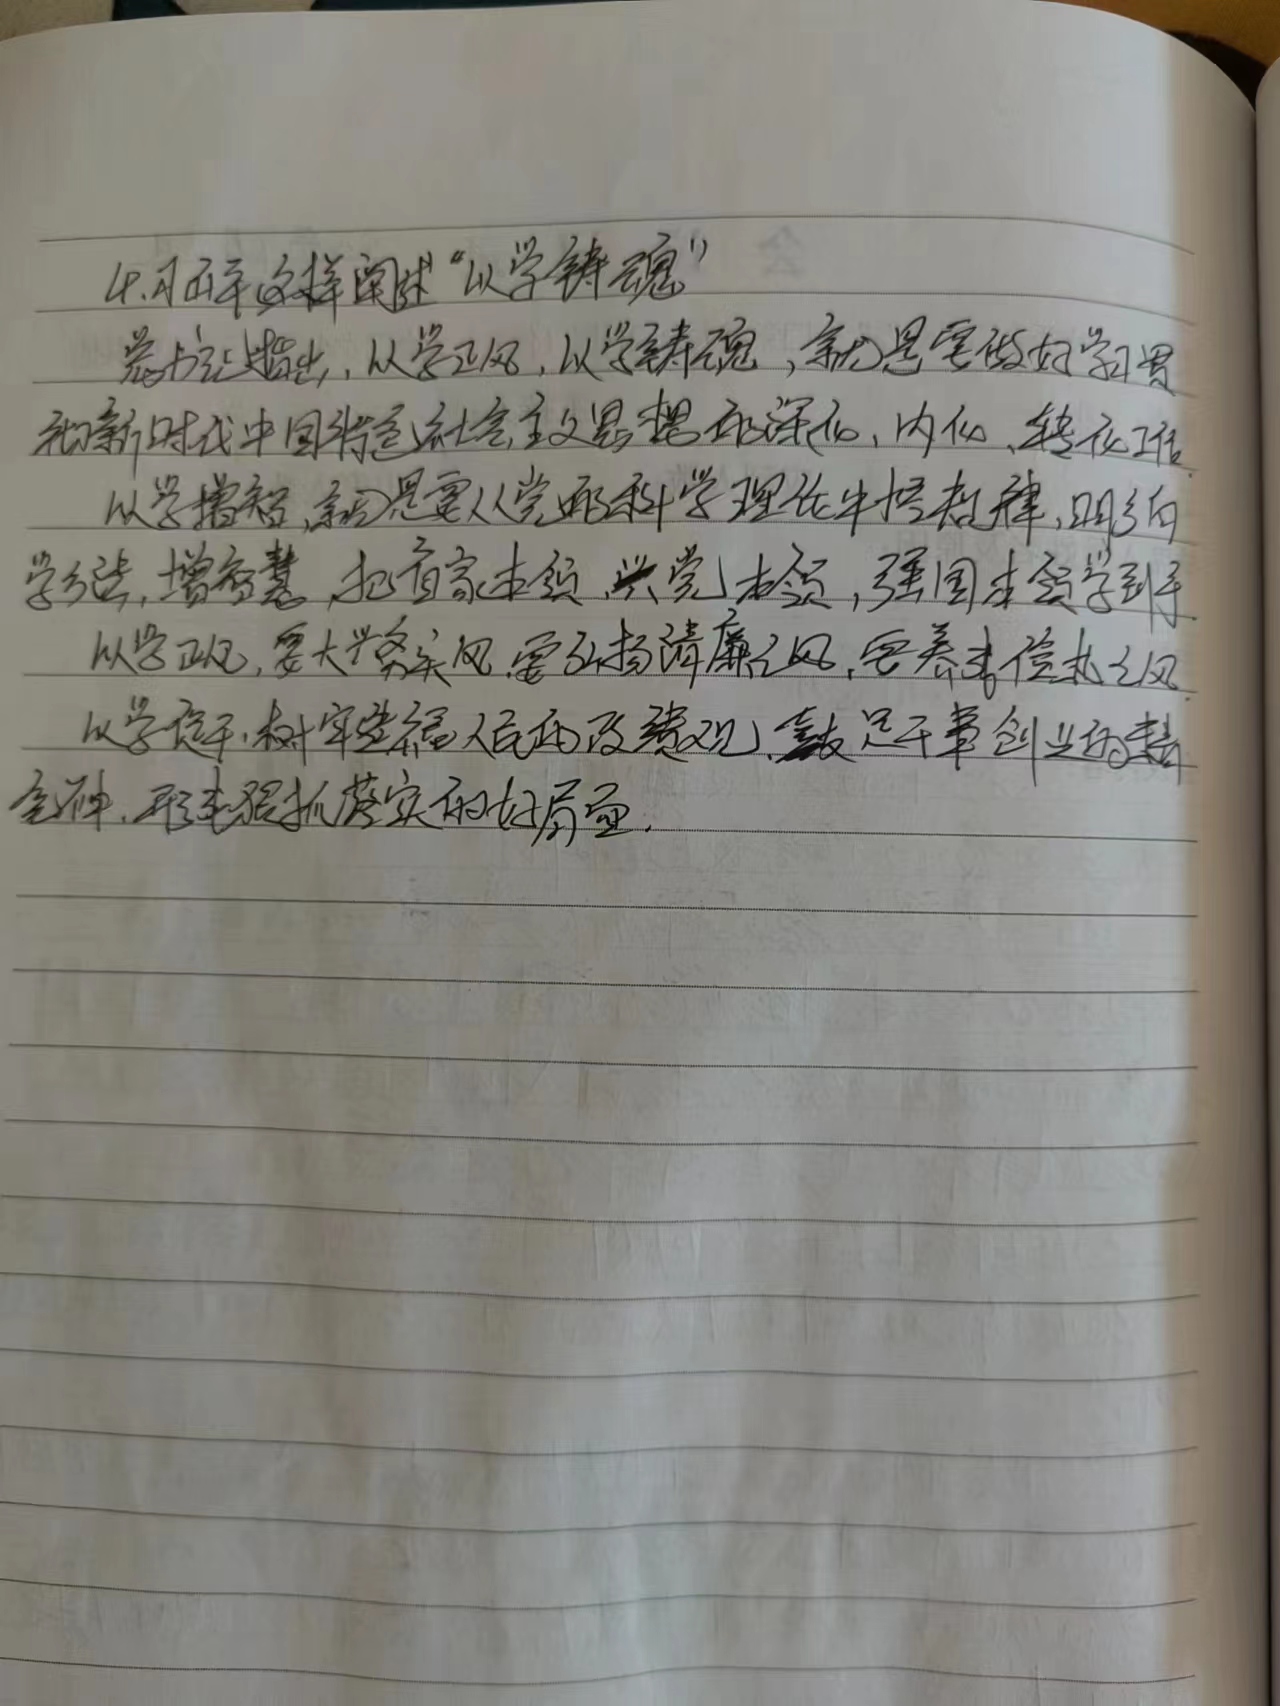 4.习近平这样阐述“以学铸魂”
总书记指出,以学正风,以学铸魂,就是要做好学习贯
彻新时代中国特色社会主义思想的深化、内化、转化工作.
以学增智,就是要从党的科学理论中悟规律,明方向
学方法,增智慧,把看家本领、兴党本领,强国本领学到手
以学正风,要大兴务实风.要弘扬清廉之风,要养成俭朴之风.
以学促干,树牢造福人民的政绩观、鼓足干事创业的精
气神.形成狠抓落实的好局面.